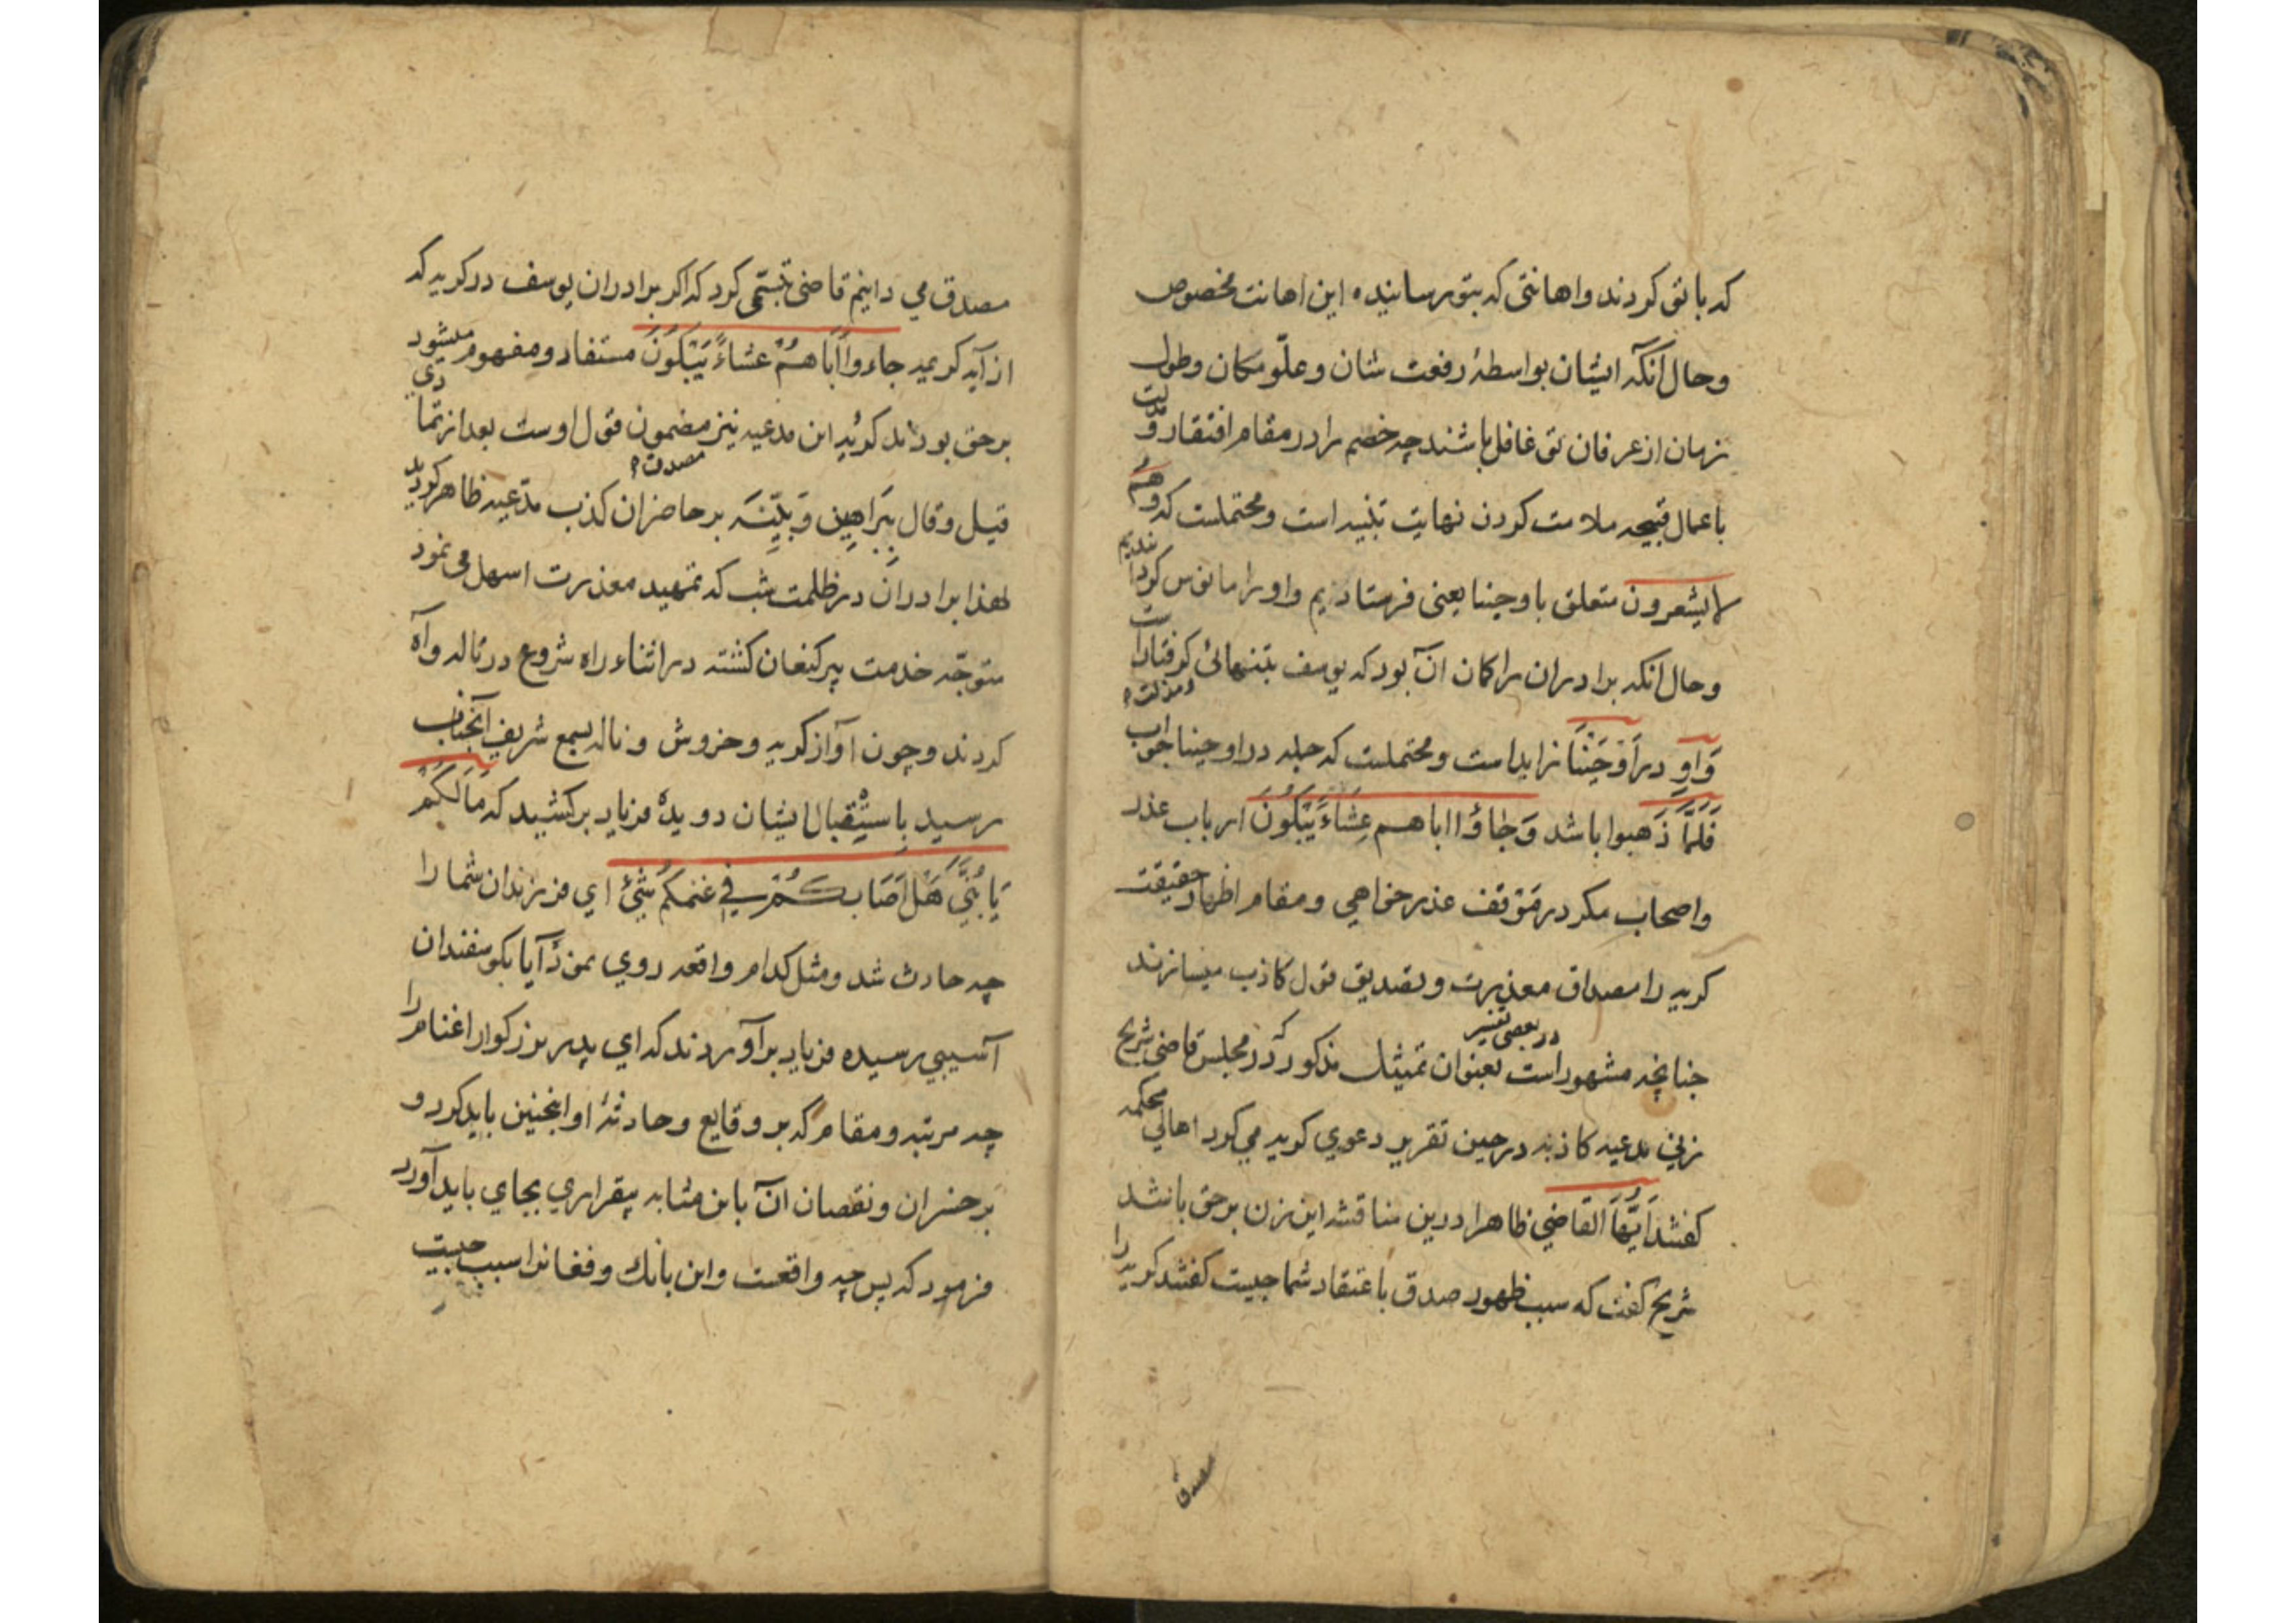 که با تو کردند و اهانتی که بتو رسانیده این اهانت مخصوص
و حال آنکه ایشان بواسطهٔ رفعت شان و علّو مکان و طول
زمان از عرفان تو غافل باشند چه خصم را در مقام افتقار و مذلت
باعمال قبیحه ملامت کردن نهایت تنبیه است و محتملست که وهم
لایشعرون متعلق باوحینا یعنی فرستادیم و او را مانوس کردانیدیم
و حال انکه برادران را کمان آن بود که یوسف بتنهائی کرفتارست
وَاو در اَوحَیْنَا زاید است و محتملست که جمله در اوحینا جواب
فَلَمَّا ذَهبوا باشد وَجاؤا اباهم عِشَاءً یَبْکُونَ ارباب عذر
و اصحاب مکر در مَوْقف عذر خواهی و مقام اظهار حقیقت
کریه را مصداق معذرت و تصدیق قول کاذب میسازند
در بعضی تفسیر
چنانچه مشهور است بعنوان تمثیل مذکور که در مجلس قاضی شریح
زنی مدعیه کاذبه در حین تقریر دعوی کریه می کرد اهالی محکمه
کفتند اَیُّهَا القاضی ظاهرا درین مناقشه این زن بر حق باشد
شریح کفت که سبب ظهور صدق باعتقاد شما چیست کفتند کریه را
مصدق
مصدق می دانیم قاضی تبسّمی کرد که اکر برادران یوسف در کریه که
از آیه کریمه جاءوا اَباهُمْ عشاءً یَبْکُونَ مستفاد و مفهوم میشود
بر حق بودند کوئید این مدعیه نیز مضمون قول اوست بعد از تمادی
قیل و قال بِبَراهین و بَیِّنَه بر حاضران کذب مدّعیه ظاهر کردید
لهذا برادران در ظلمت شب که تمهید معذرت اسهل می نمود
متوجّه خدمت پیر کنعان کشته در اثناء راه شروع در ناله و آه
کردند و چون آواز کریه و خروش و ناله بسمع شریف آنجناب
رسید باستِقبال ایشان دویده فریاد برکشید که مَالَکُمْ
یَا بُنَیَّ هَلْ اَصَابَکُمْ فی غنمکُم شَیْئٌ ای فرزندان شما را
چه حادث شد و مثل کدام واقعه روی نمود آیا بکوسفندان
آسیبی رسیده فریاد برآوردند که ای پدر بزرکوار اغنام را
چه مرتبه و مقام که بر وقایع و حادثهٔ او اینچنین باید کرد و
بر خسران و نقصان آن باین مثابه بیقراری بجای باید آورد
فرمود که پس چه واقعست و این بانک و فغانرا سبب چیست